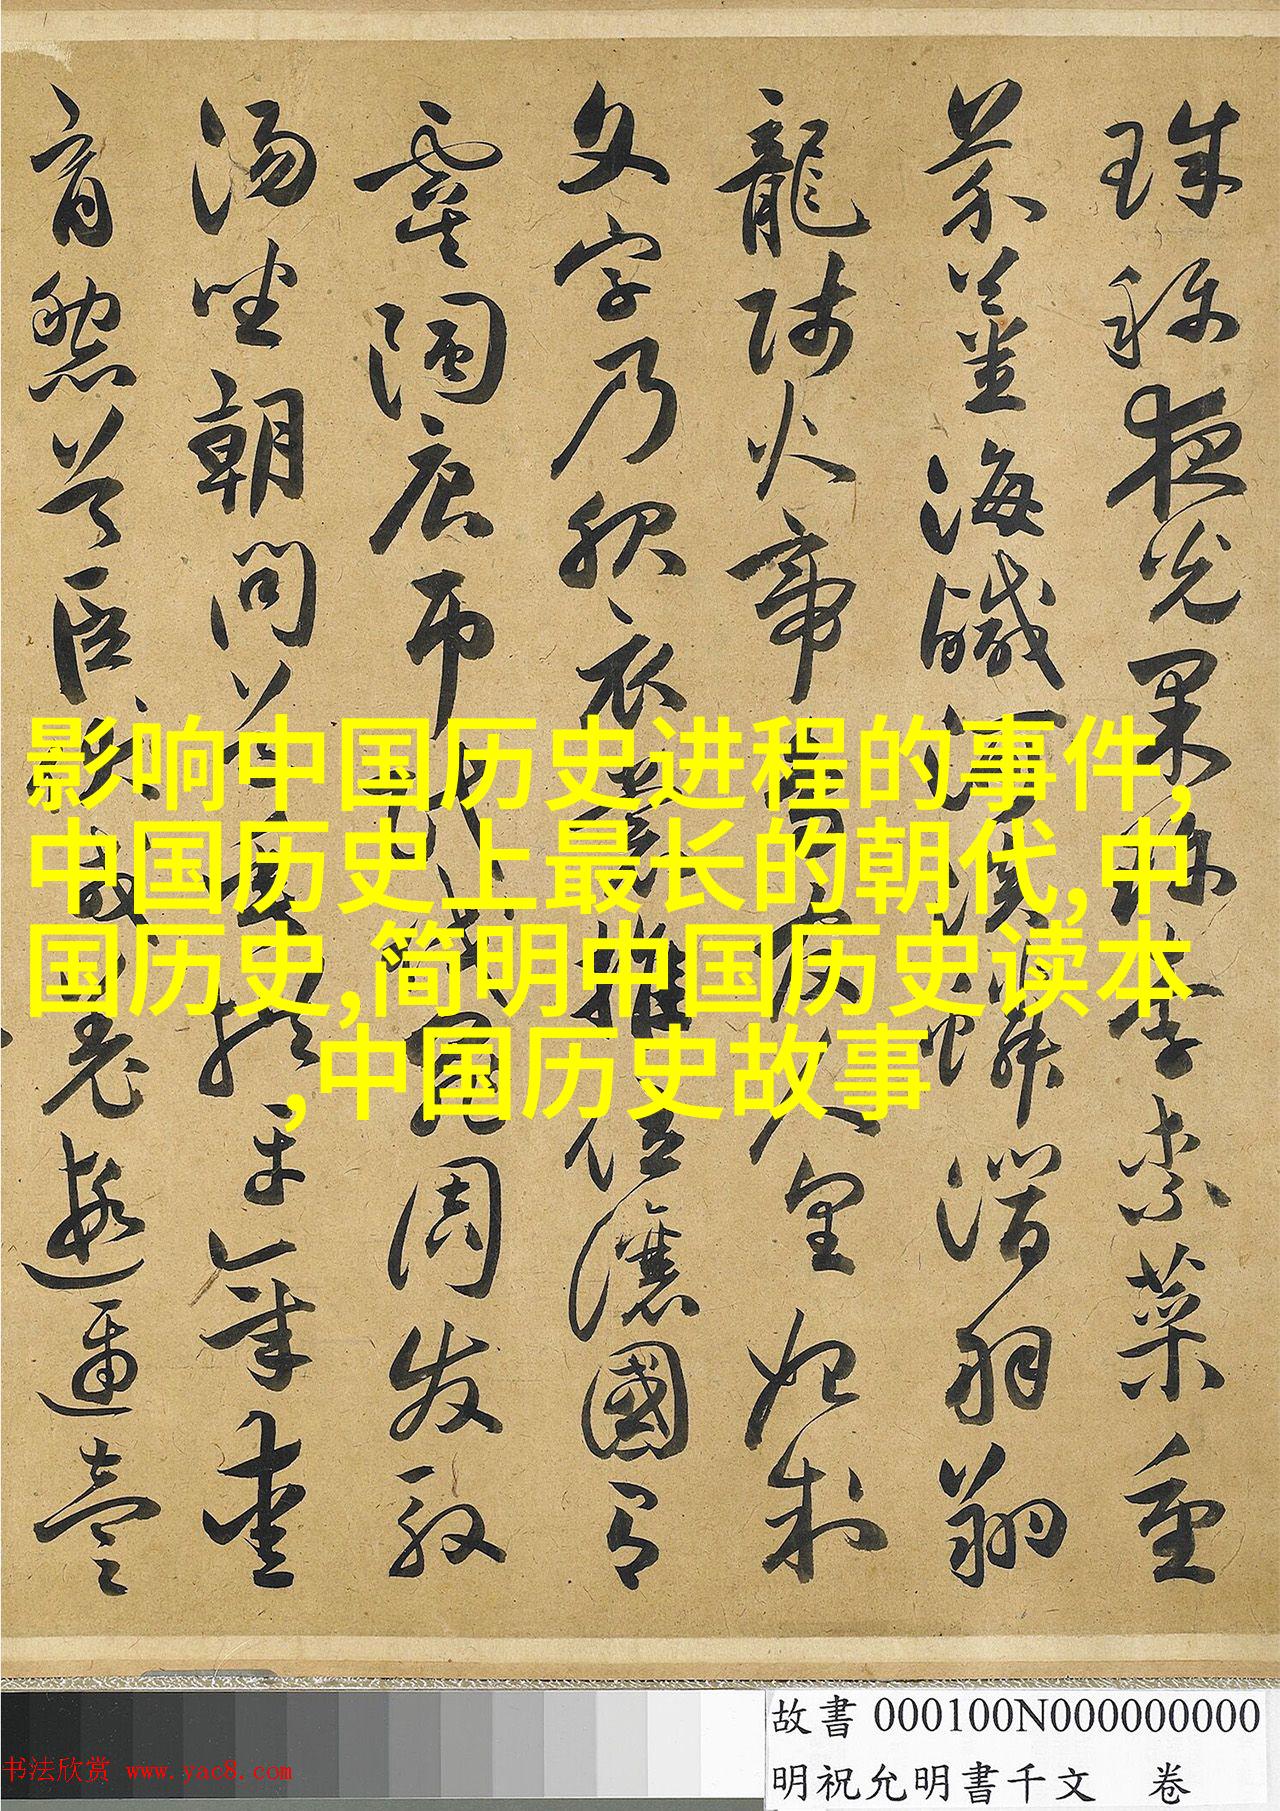 珠称夜光果珍李柰菜重
芥薑海鹹河淡鱗潛羽翔
龍師火帝鳥官人皇始制
文字乃服衣裳推位讓國有
虞陶唐弔民伐罪周發殷
湯坐朝問道垂拱平章愛
育黎首臣伏戎羌遐邇壹
影响中国历史进程的事件,
中国历史上最长的朝代,中
国历史,简明中国历史读本
,中国历史故事
故書 000100N000000000
明祝允明書千文 卷
书法欣赏 www.yac8.com